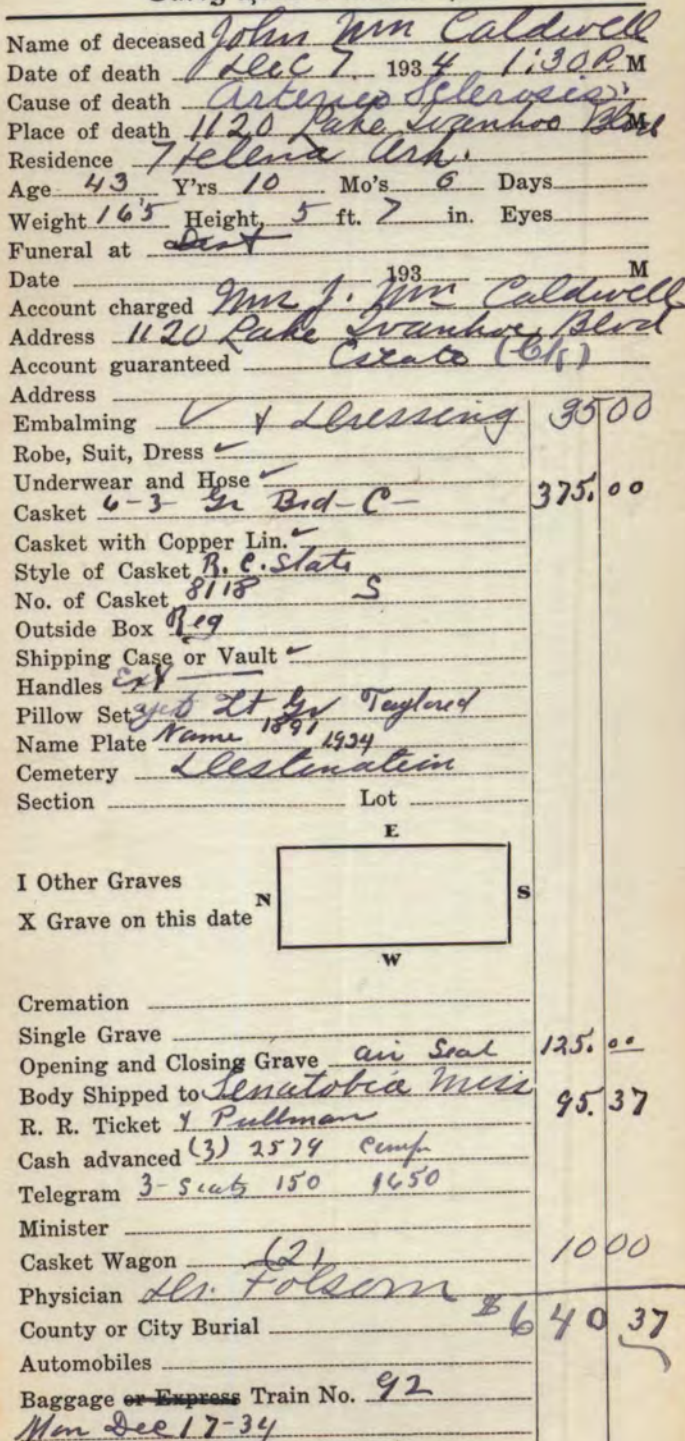 Name of deceased John Wm Caldwell
Date of death Dec 7 1934 1:30 P. M
Cause of death Arterico Sclerosis
Place of death 1120 Lake Ivanhoo Blvd M
Residence Helena Ark.
Age 43 Y'rs 10 Mo's 6 Days
Weight 165 Height, 5 ft. 7 in. Eyes
Funeral at Dest
Date 193 M
Account charged Mrs J. Wm Caldwell
Address 1120 Lake Ivanhoe Blvd
Account guaranteed (Ck)
Address
Embalming ✓ & Dressing 35 00
Robe, Suit, Dress ✓
Underwear and Hose ✓
Casket 6-3- Gr Brd-C- 375.00
Casket with Copper Lin. ✓
Style of Casket R. C. State
No. of Casket 8118 S
Outside Box Reg
Shipping Case or Vault ✓
Handles Ext
Pillow Set Lt Gr Taylored
Name Plate Name 1891 1934
Cemetery Destination
Section Lot
E
I Other Graves
N S
X Grave on this date
W
Cremation
Single Grave
Opening and Closing Grave air Seal 125.00
Body Shipped to Senatobia Miss
R. R. Ticket & Pullman 95.37
Cash advanced (3) 2579
Telegram 3-Seats 150 1650
Minister
Casket Wagon (2) 10 00
Physician Dr. Folsom
County or City Burial $640 37
Automobiles
Baggage or Express Train No. 92
Mon Dec 17-34